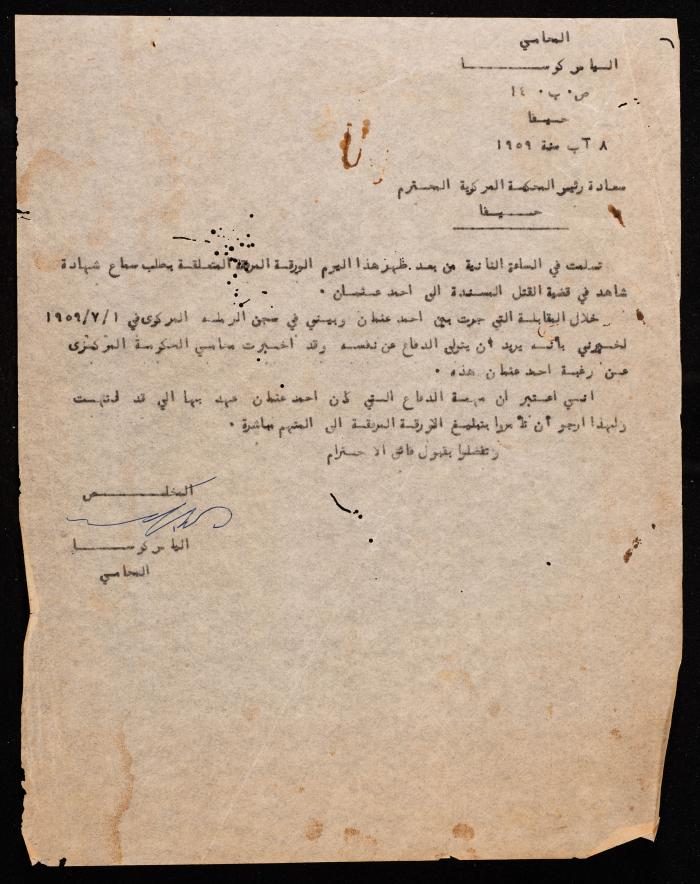 المحامي
الياس كوسـا
ص.ب. ١٤
حيفا
٨ آب سنة ١٩٥٩
سعادة رئيس المحكمة المركزية المحترم
حيفا
تسلمت في الساعة الثانية من بعد ظهر هذا اليوم الورقة المرفقة المتعلقة بطلب سماع شهادة
شاهد في قضية القتل المسندة الى احمد عثمان .
خلال المقابلة التي جرت بين احمد عثمان وبيني في سجن الرملة المركزي في ١/٧/١٩٥٩
اخبرني بأنه يريد أن يتولى الدفاع عن نفسه وقد اخبرت محامي الحكومة المركزي
عن رغبة احمد عثمان هذه .
انني اعتبر ان مهمة الدفاع التي كان احمد عثمان عهد بها الي قد انتهت
ولهذا ارجو أن تأمروا بتبليغ الورقة المرفقة الى المتهم مباشرة .
وتفضلوا بقبول فائق الاحترام
المخلص
الياس كوسـا
المحامي